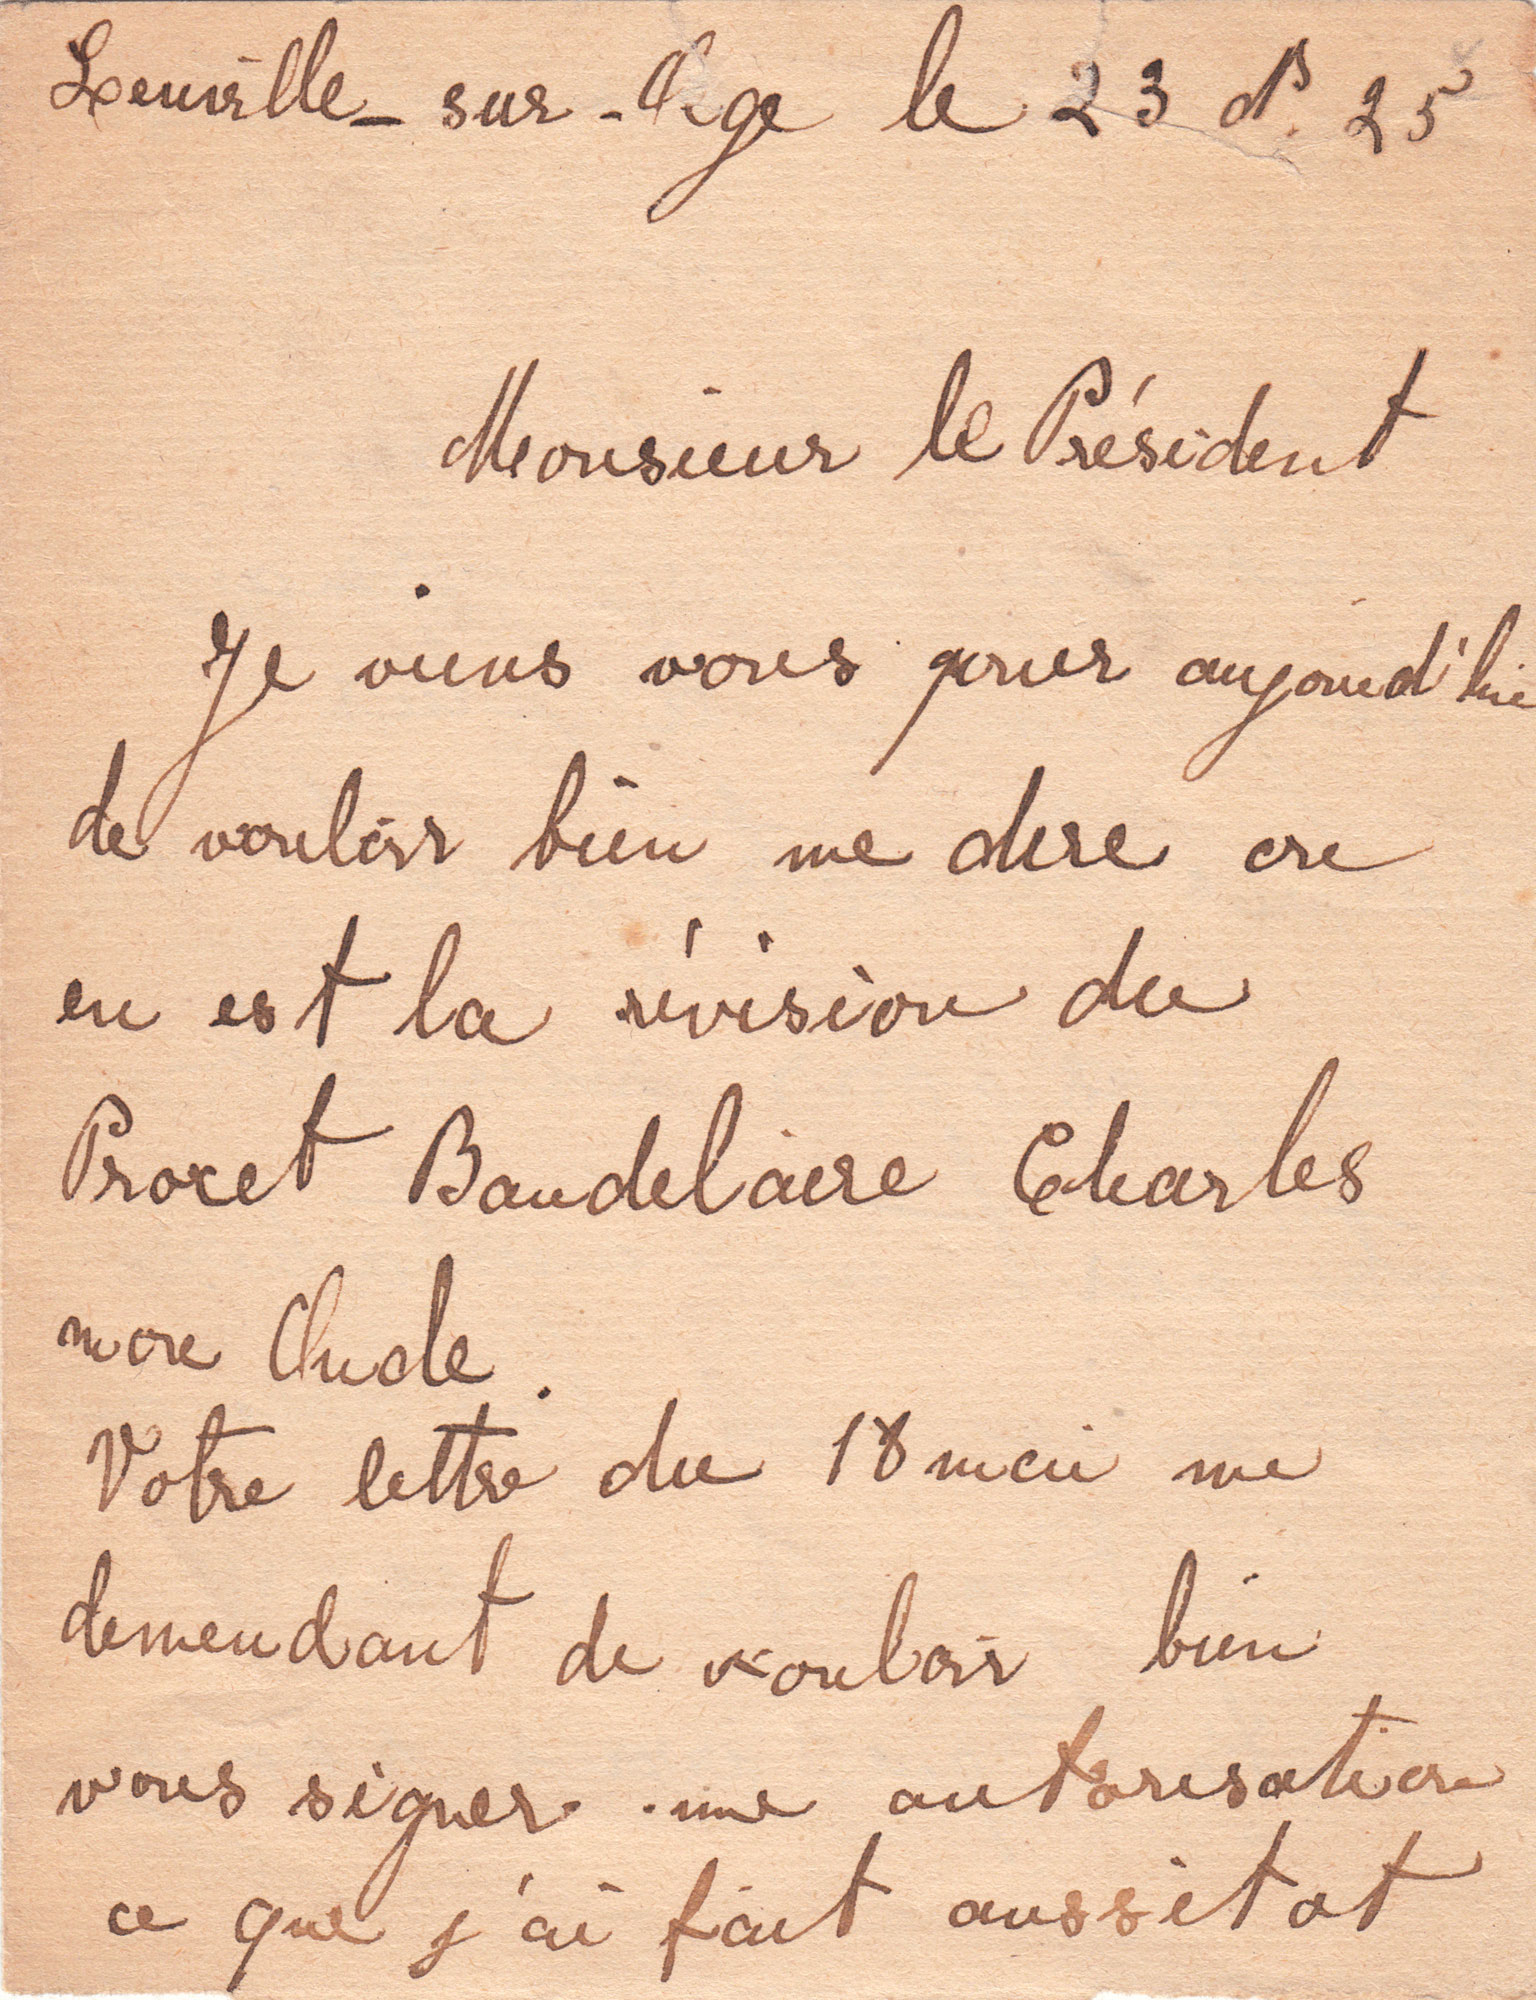 Leuville - sur - Orge le 23 dbre 25
Monsieur le Président
Je viens vous prier aujourd'hui
de vouloir bien me dire ou
en est la révision du
Procet Baudelaire Charles
mon Oncle.
Votre lettre du 18 mai me
demendant de vouloir bien
vous signer une autorisation
ce que j'ai fait aussitot